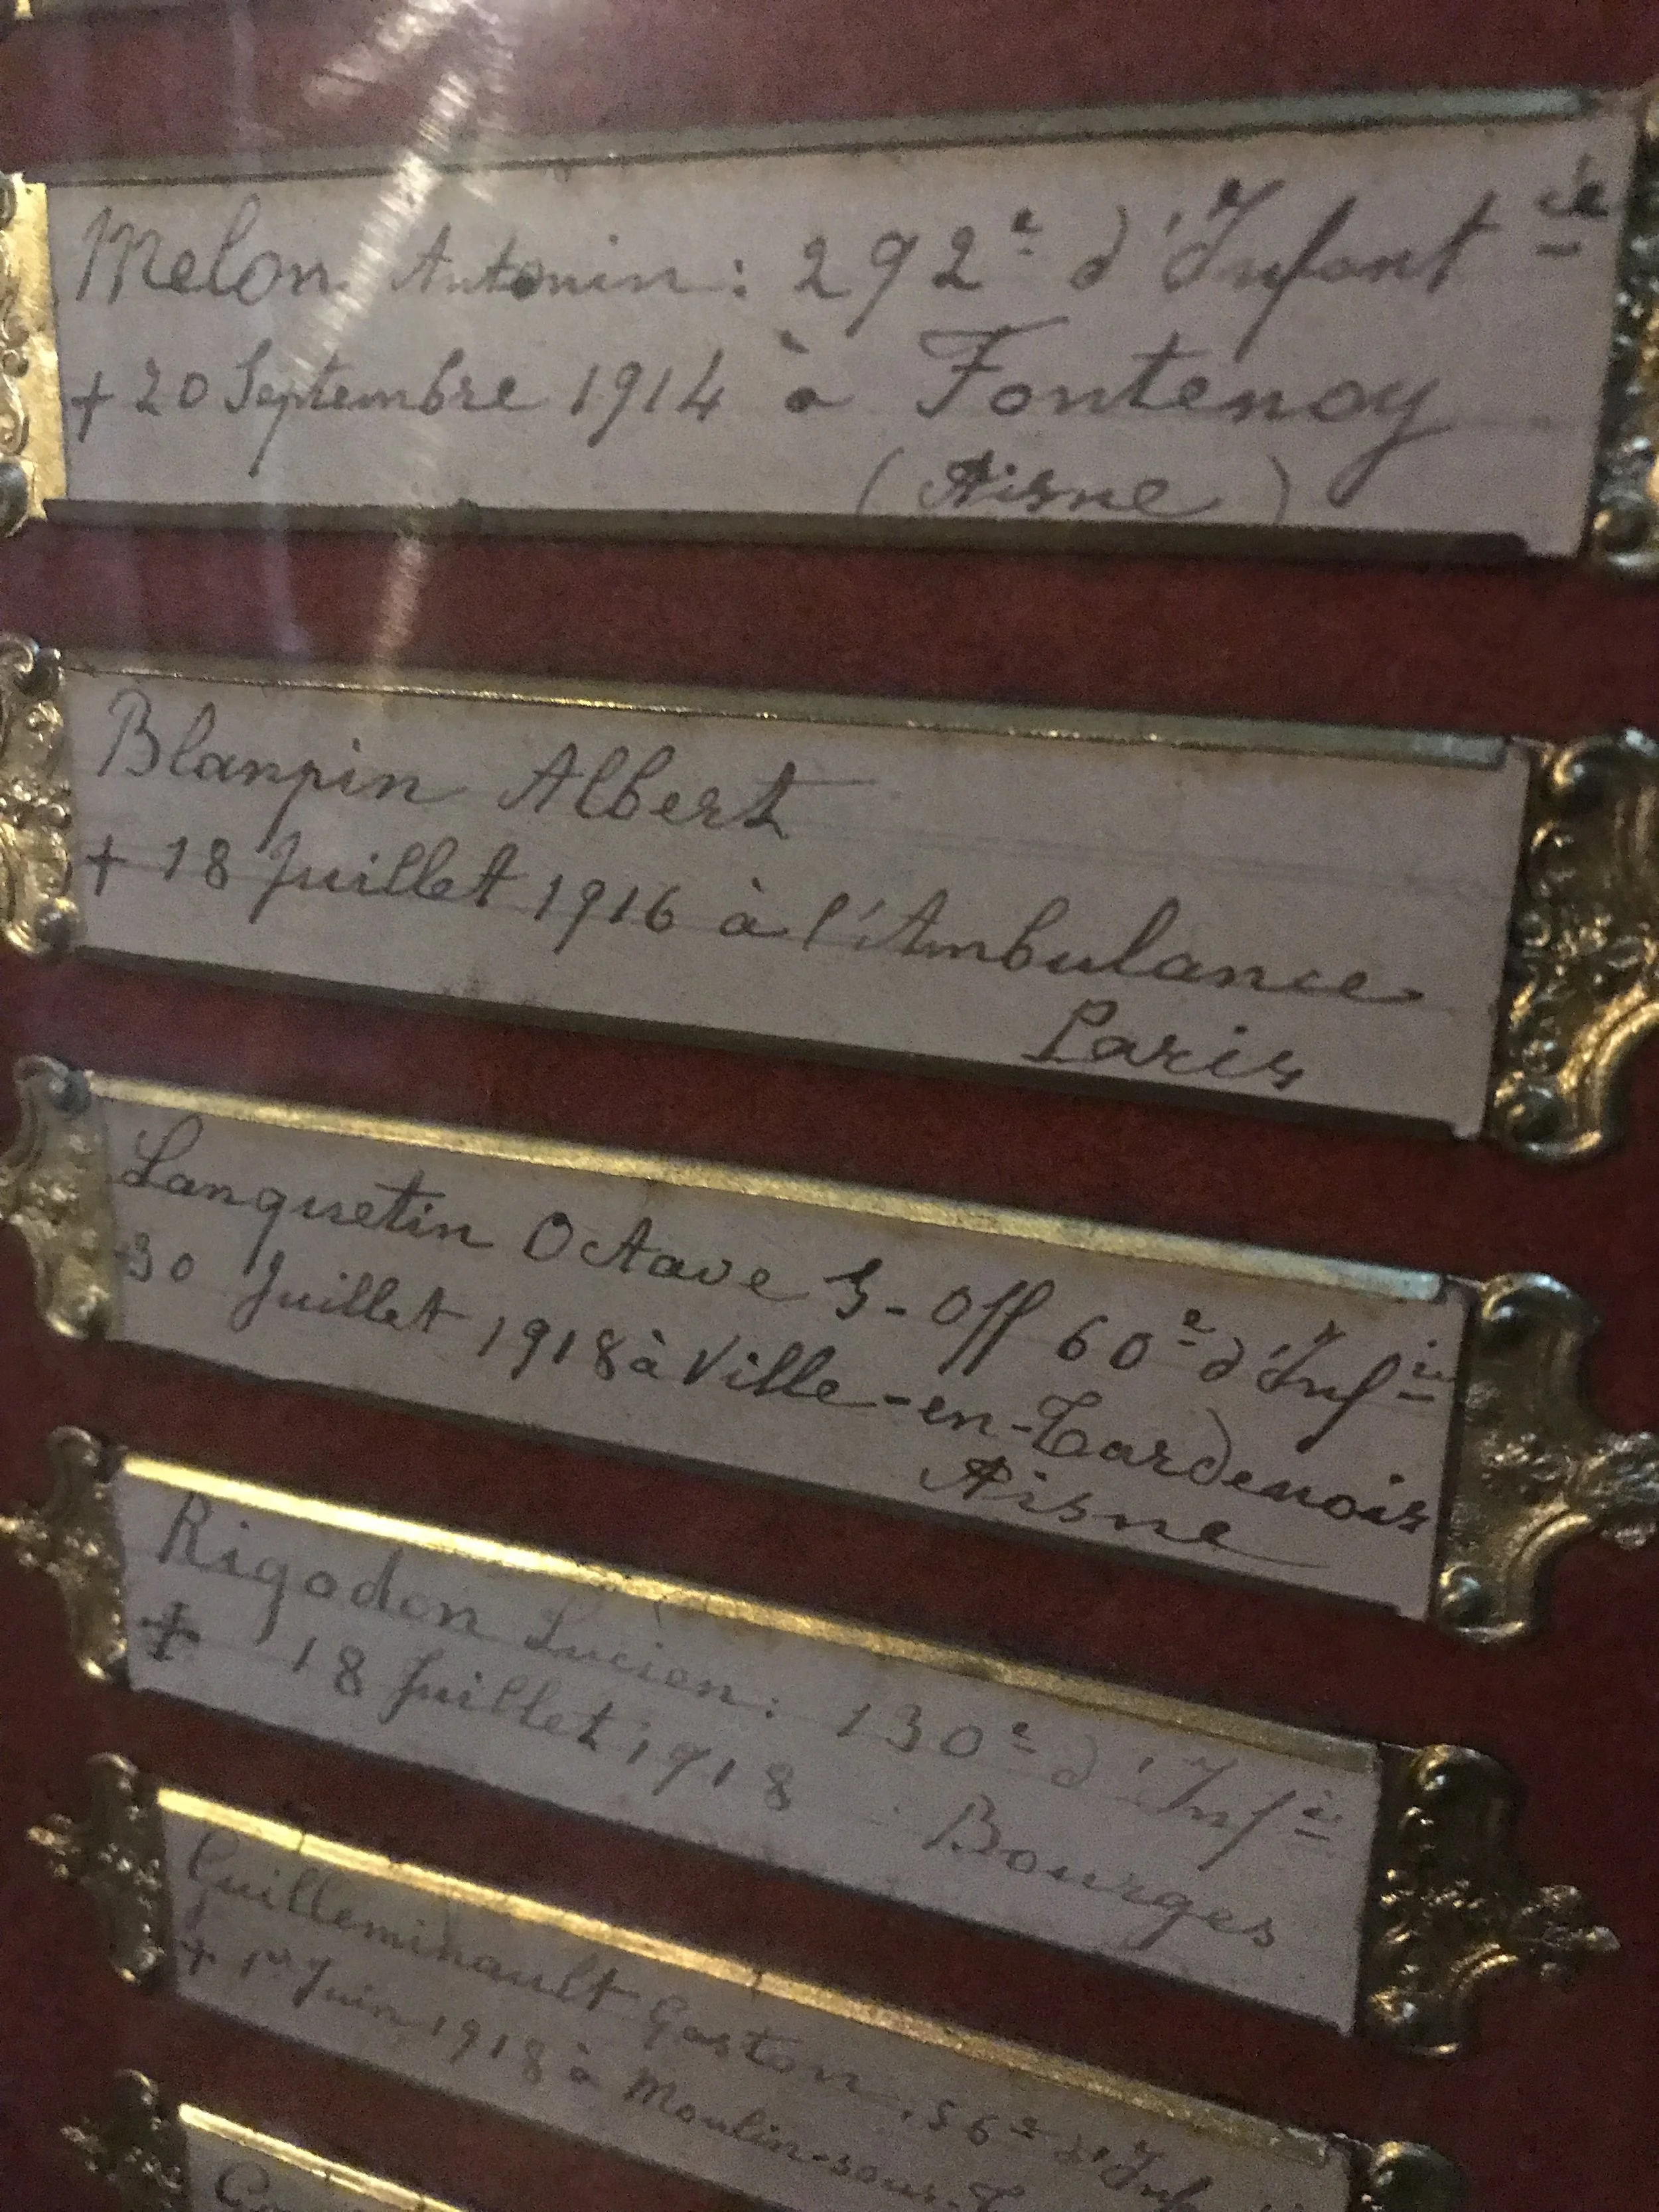 Melon Antonin : 292e d'Infant ie
+ 20 Septembre 1914 à Fontenoy
( Aisne )
Blanpin Albert
+ 18 Juillet 1916 à l'Ambulance
Paris
Lanquetin Octave S-Off 60e d'Inf ie
+30 Juillet 1918 à Ville-en-Tardenois
Aisne
Rigodon Lucien : 130e d'Inf ie
+ 18 Juillet 1918 Bourges
Guilleminault Gaston, 56e d'Inf
+ 1er Juin 1918 à Moulin-sous-T